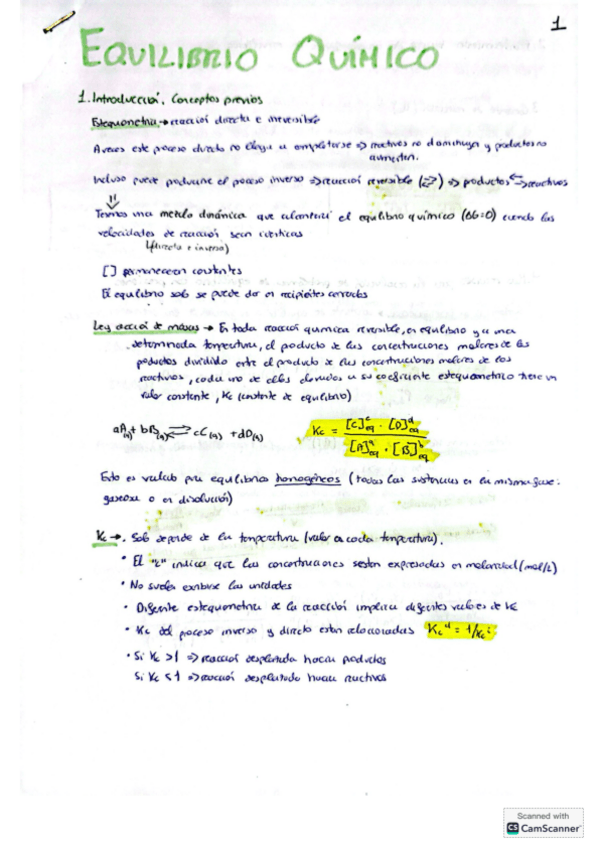 1
EQUILIBRIO QUÍMICO
1. Introducción. Conceptos previos
Estequiometria → reacción directa e irreversible
A veces este proceso directo no llega a completarse ⇒ reactivos no disminuyen y productos no
aumenten.
Incluso puede producirse el proceso inverso ⇒ reacción reversible (⇄) ⇒ productos ⇆ reactivos
⇓
Tenemos una dinámica que alcanzará el equilibrio químico (ΔG=0) cuando las
velocidades de reacción sean idénticas
(directa e inversa)
[ ] permanecen constantes
El equilibrio solo se puede dar en recipientes cerrados
Ley acción de masas → En toda reacción química reversible, en equilibrio y a una
determinada temperatura, el producto de las concentraciones molares de los
productos dividido entre el producto de las concentraciones molares de los
reactivos, cada uno de ellos elevados a su coeficiente estequiometrico tiene un
valor constante, Kc (constante de equilibrio)
aA(g) + bB(g) ⇄ cC(g) + dD(g)
Kc = [C]^c eq · [D]^d eq / [A]^a eq · [B]^b eq
Esto es valido para equilibrios homogéneos (todas las sustancias en la misma fase:
gaseosa o en disolución)
Kc →. Solo depende de la temperatura (valor a cada temperatura).
• El "c" indica que las concentraciones están expresadas en molaridad (mol/L)
• No suelen escribirse las unidades
• Diferente estequiometria de la reacción implica diferentes valores de Kc
• Kc del proceso inverso y directo están relacionadas Kc^d = 1/Kc^i
• Si Kc > 1 ⇒ reacción desplazada hacia productos
Si Kc < 1 ⇒ reacción desplazada hacia reactivos
Scanned with
CS CamScanner